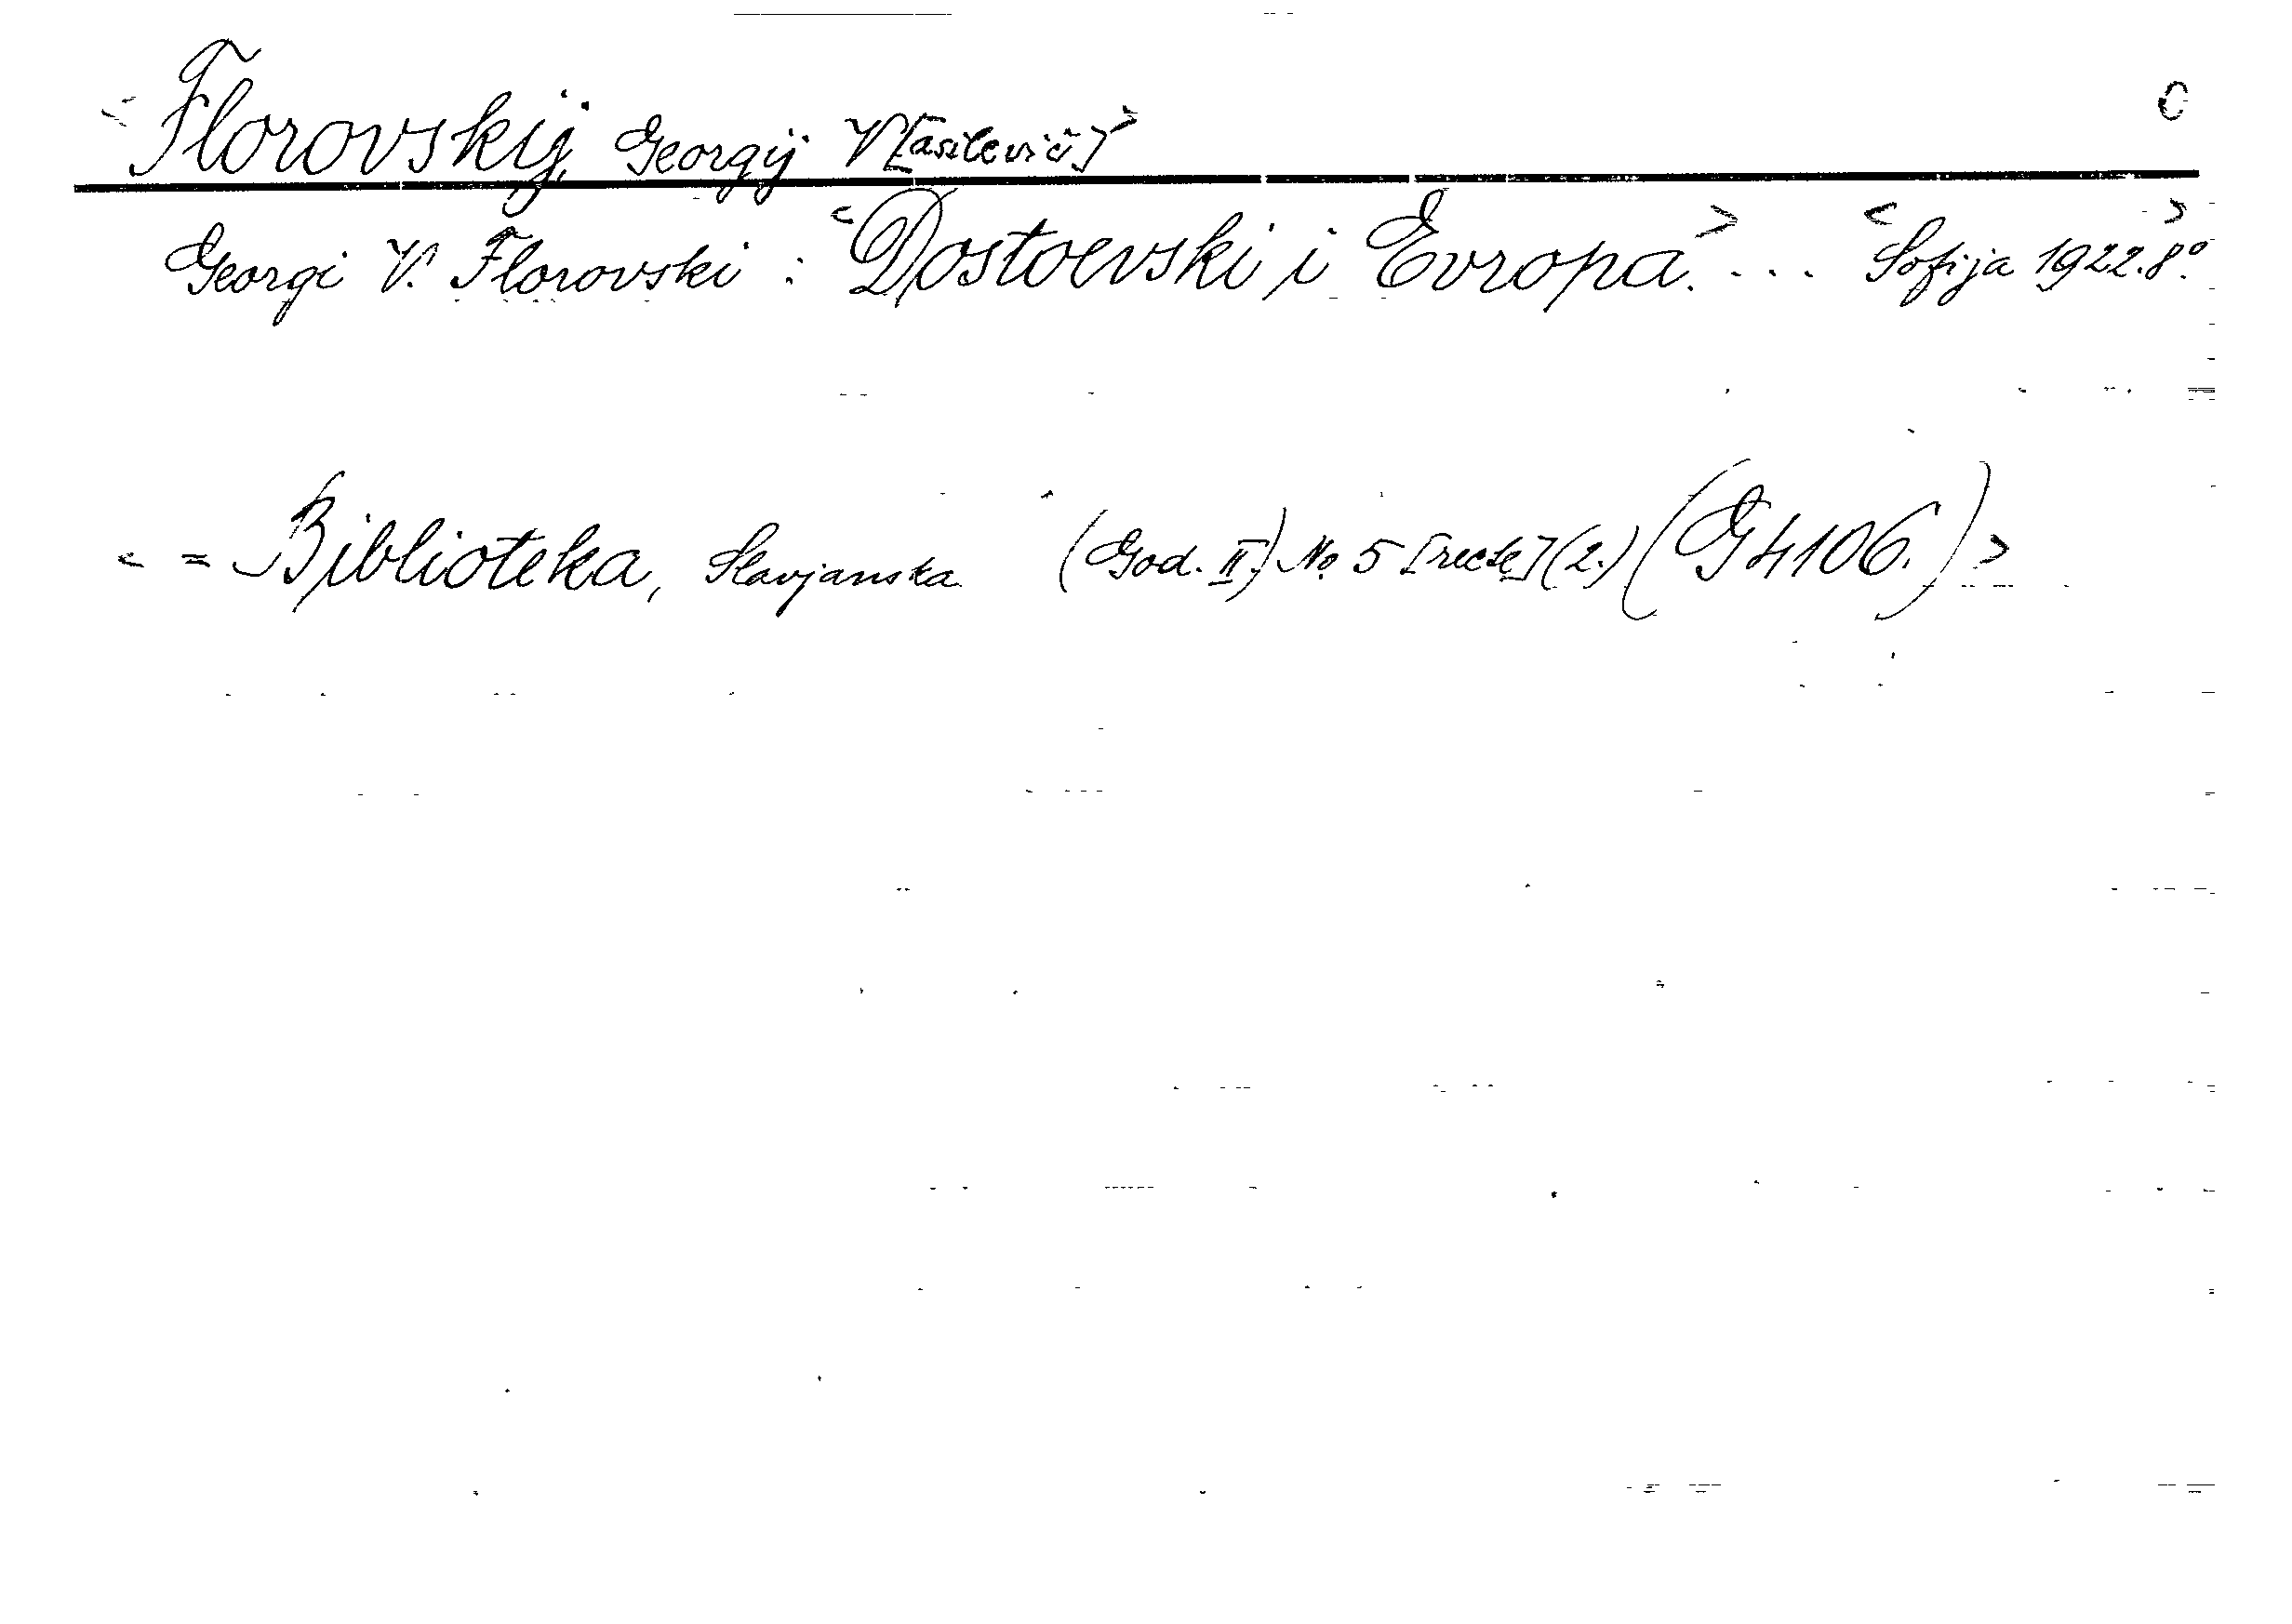 <Florovskij, Georgij V[asilevič]> C
Georgi V. Florovski : <Dostoevski i Evropa.> ... <Sofija 1922.> 8º.
< = Biblioteka, Slavjanska (God. II.) No 5 [recte] (2.) (G 4106.) >